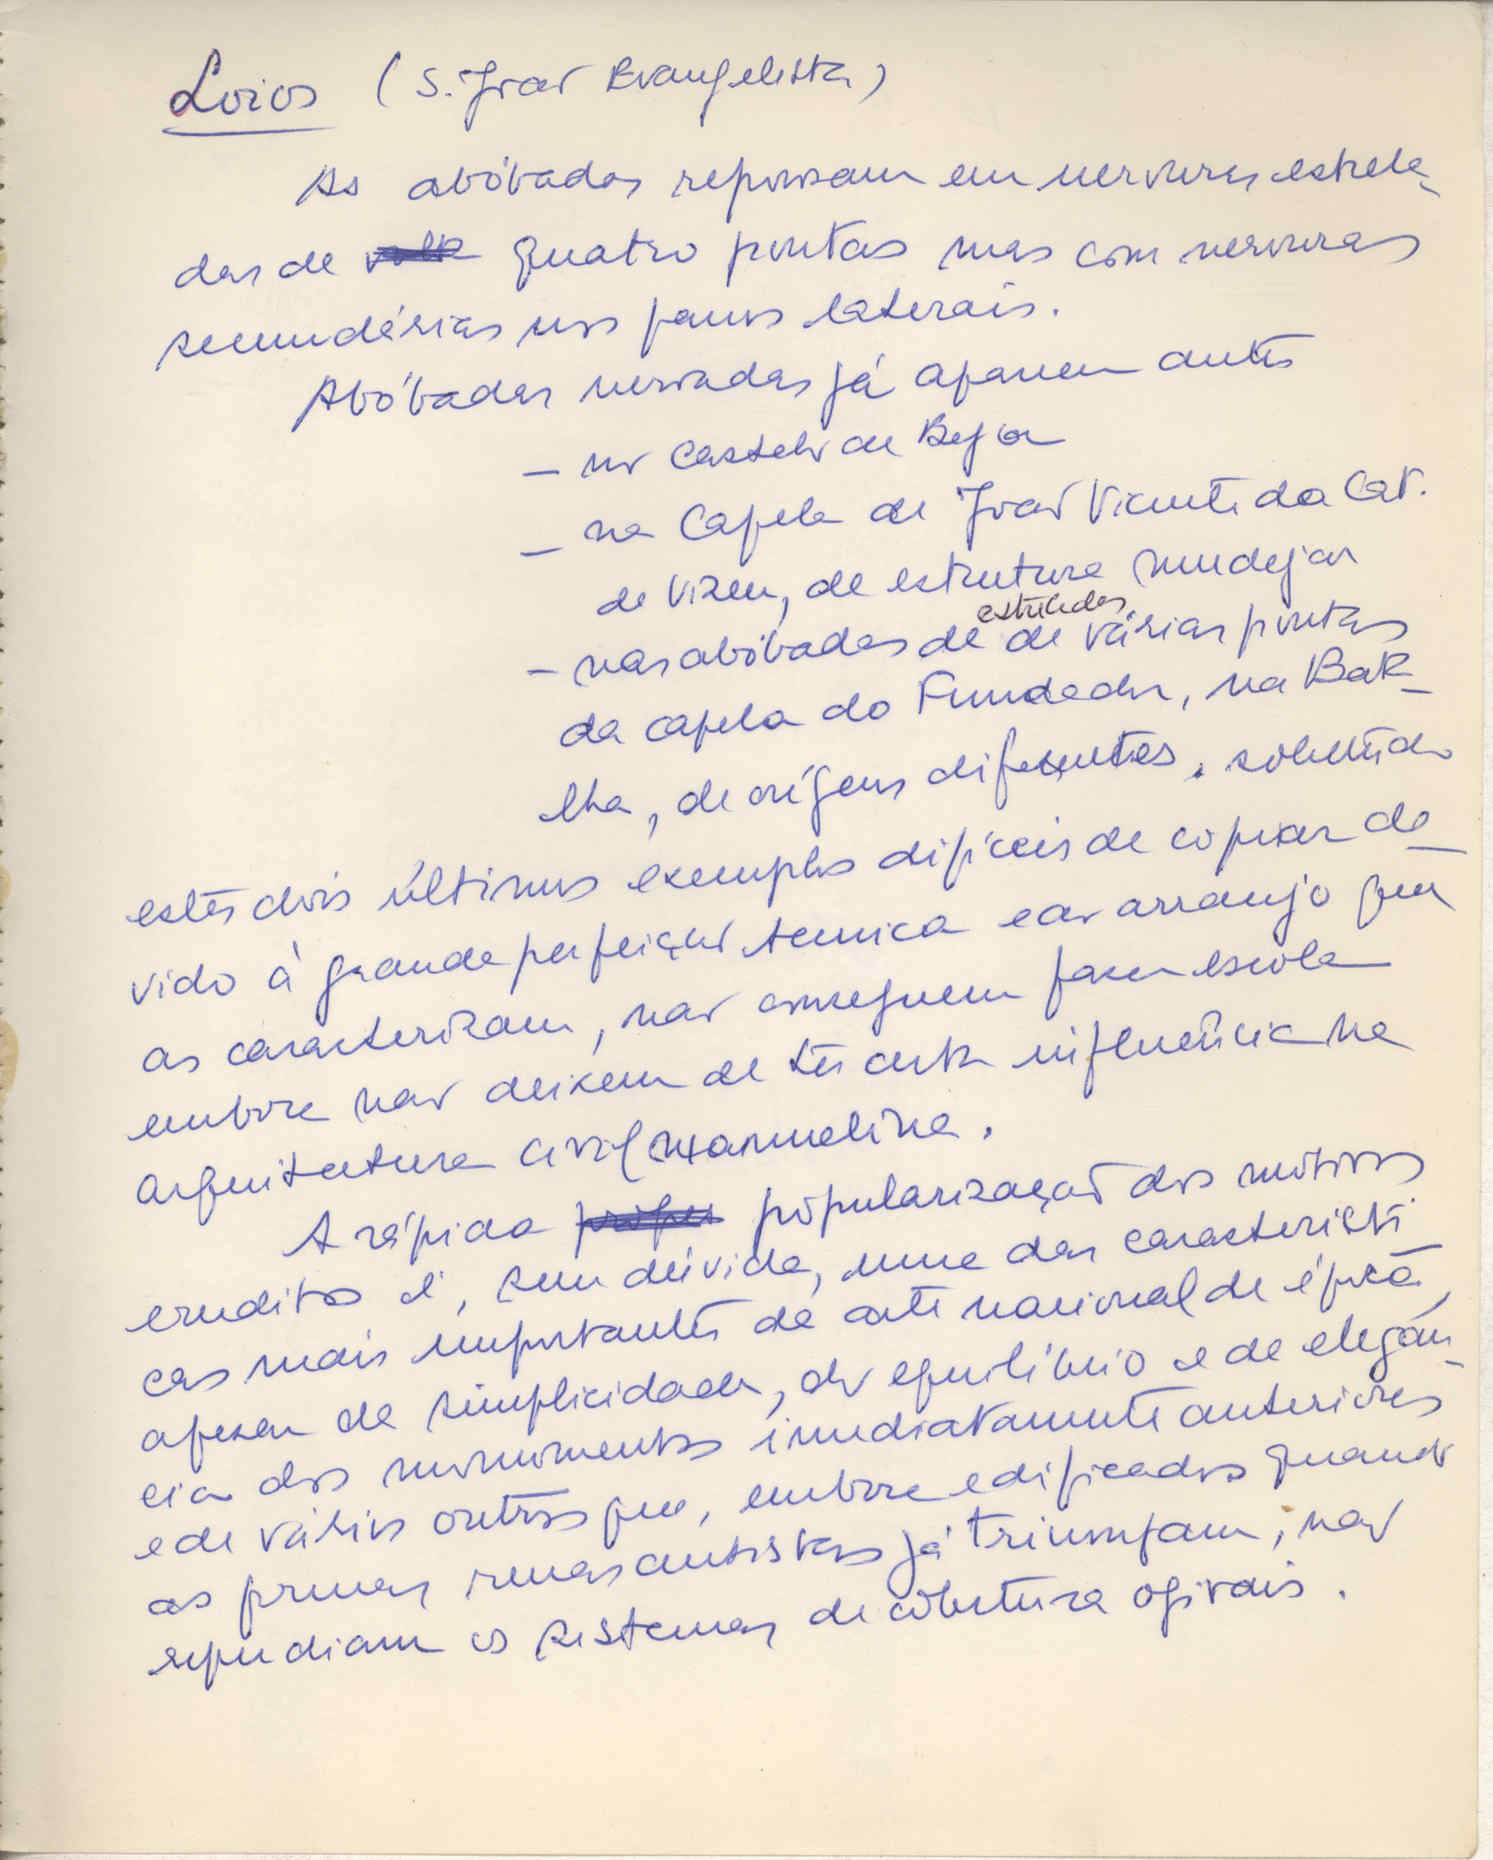 Loios (S. João Evangelista)
As abóbadas repousam em nervuras estrela-
das de quatro pontas mas com nervuras
secundárias nos panos laterais.
Abóbadas nervadas já aparecem antes
- no Castelo de Beja
- na Capela de João Vicente da Cat.
de Vizeu, de estrutura mudejar
- nas abóbadas de estreladas de várias pontas
da capela do Fundador, na Bata-
lha, de orígens diferentes, sobretudo
estes dois últimos exemplos difíceis de copiar de-
vido à grande perfeição tecnica e ao arranjo que
as caracterizam, não conseguem fazer escola
embora não deixem de ter certa influência na
arquitectura civil manuelina.
A rápida popularização dos motivos
eruditos é, sem dúvida, uma das caracteristi
cas mais importantes da arte nacional da época,
apesar da simplicidade, do equilíbrio e da elegân-
cia dos monumentos imediatamente anteriores
e de vários outros que, embora edificados quando
as formas renascentistas já triunfam, não
repudiam os sistemas de cobertura ogivais.